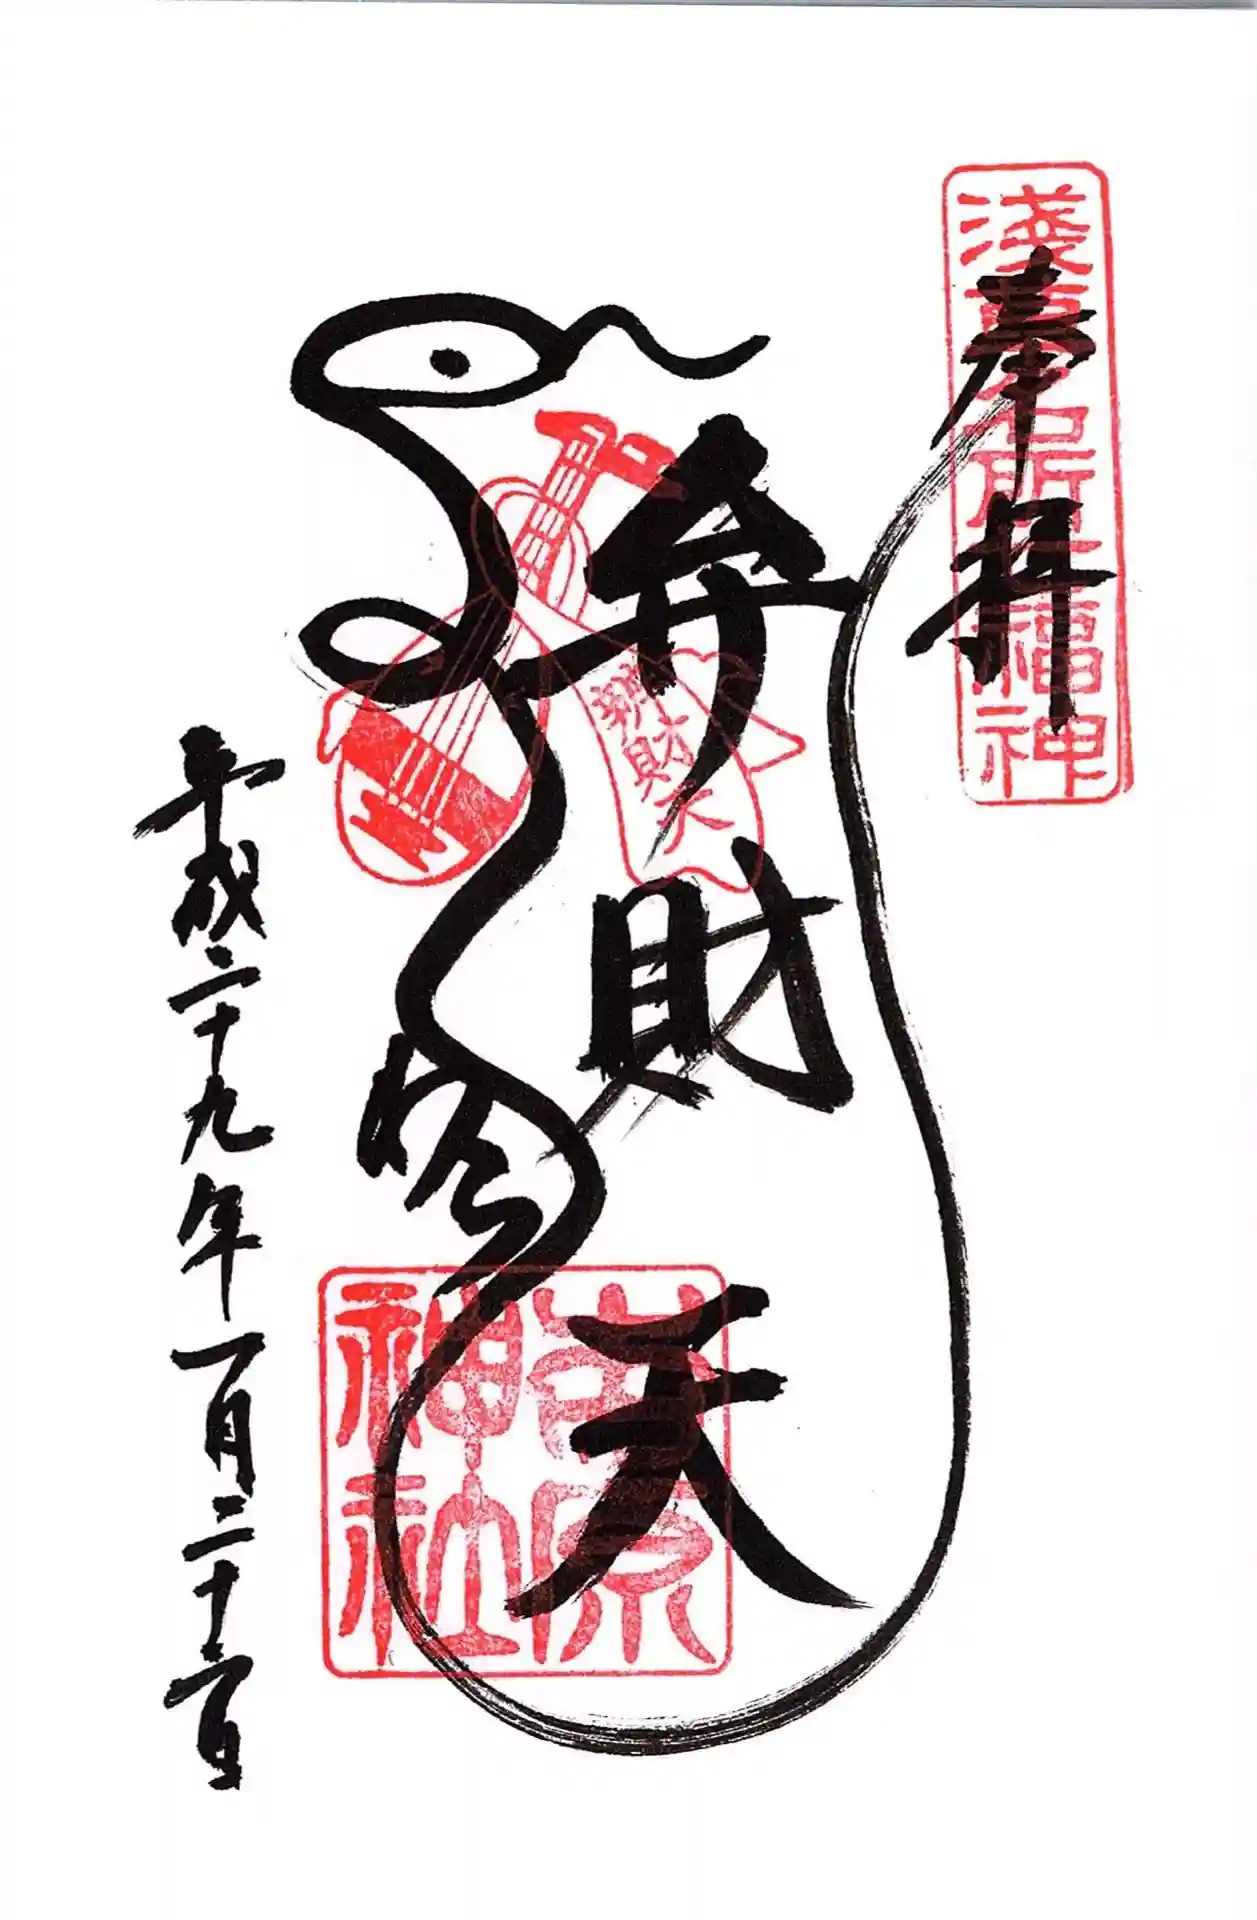 淺草名所七福神
奉拝
弁財天
辨財天
吉原神社
平成二十九年一月二十二日